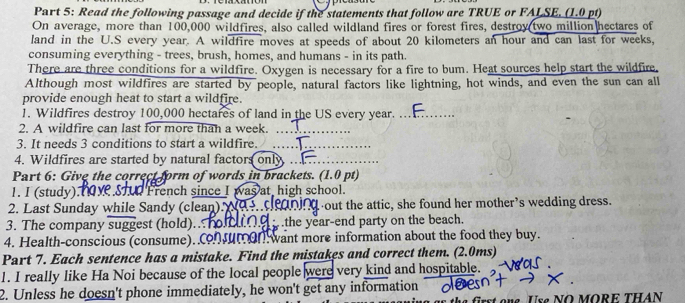 Part 5: Read the following passage and decide if the statements that follow are TRUE or FALSE. (1.0 pt)
On average, more than 100,000 wildfires, also called wildland fires or forest fires, destroy two million hectares of
land in the U.S every year. A wildfire moves at speeds of about 20 kilometers an hour and can last for weeks,
consuming everything - trees, brush, homes, and humans - in its path.
There are three conditions for a wildfire. Oxygen is necessary for a fire to burn. Heat sources help start the wildfire.
Although most wildfires are started by people, natural factors like lightning, hot winds, and even the sun can all
provide enough heat to start a wildfire.
1. Wildfires destroy 100,000 hectares of land in the US every year. ...F.........
2. A wildfire can last for more than a week. ....T............
3. It needs 3 conditions to start a wildfire. .....T............
4. Wildfires are started by natural factors only. ...F...............
Part 6: Give the correct form of words in brackets. (1.0 pt)
1. I (study) have studied French since I was at high school.
2. Last Sunday while Sandy (clean) was cleaning out the attic, she found her mother's wedding dress.
3. The company suggest (hold)...holding...the year-end party on the beach.
4. Health-conscious (consume)..consumante want more information about the food they buy.
Part 7. Each sentence has a mistake. Find the mistakes and correct them. (2.0ms)
1. I really like Ha Noi because of the local people were very kind and hospitable. → was.
2. Unless he doesn't phone immediately, he won't get any information doesn't → x
the first one. Use NO MORE THAN